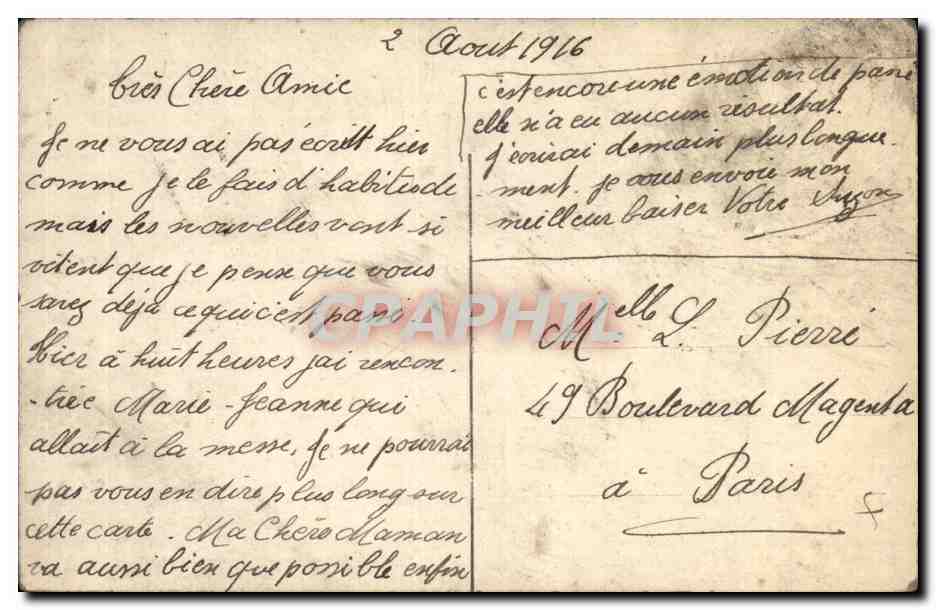 2 Aout 1916
très Chère Amie
Je ne vous ai pas écrit hier
comme je le fais d'habitude
mais les nouvelles vont si
vitent que je pense que vous
savez déjà ce qui c'est passé.
Hier à huit heures j'ai rencon-
-trée Marie-Jeanne qui
allait à la messe, Je ne pourrai
pas vous en dire plus long sur
cette carte. Ma Chère Maman
va aussi bien que possible enfin
c'est encore une émotion de passé
elle n'a eu aucun résultat.
J'écrirai demain plus longue-
-ment. Je vous envoie mon
meilleur baiser Votre Suzon
CPAPHIL
Melle L. Pierré
49 Boulevard Magenta
à Paris